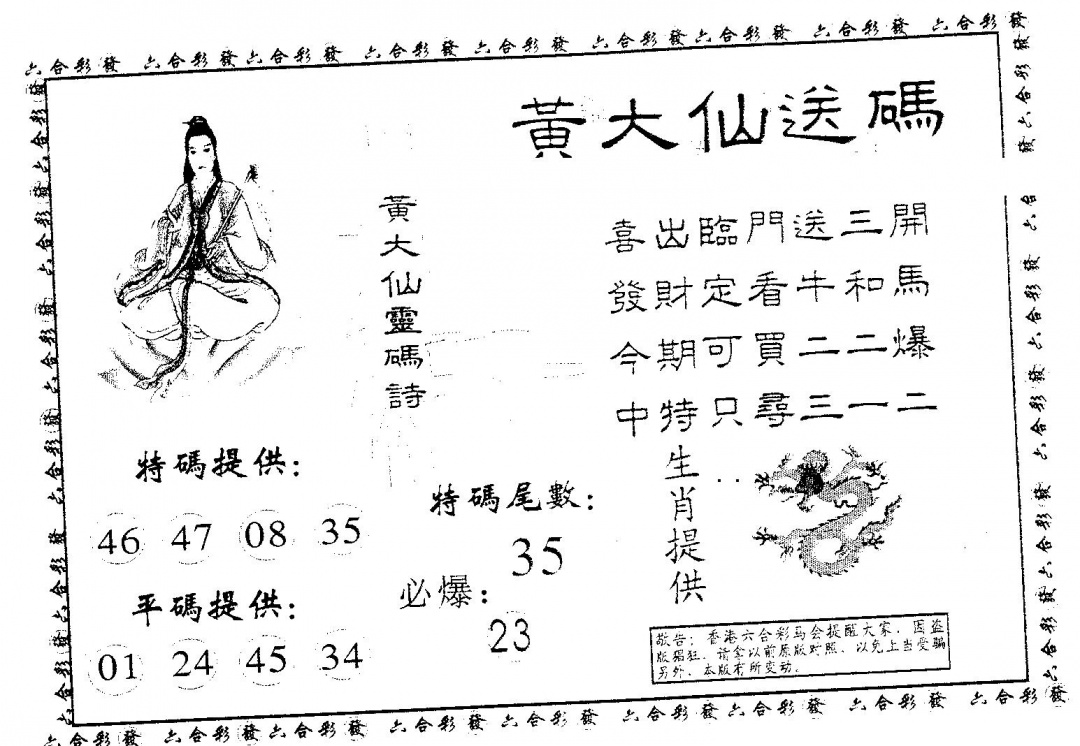 六合彩發 六合彩發六合彩發 六合彩發 六合彩發 六合彩發六合彩發 六合彩發 六合彩發
黃大仙送碼
黃大仙靈碼詩
喜出臨門送三開
發財定看牛和馬
今期可買二二爆
中特只尋三一二
特碼提供：
46 47 08 35
平碼提供：
01 24 45 34
特碼尾數：
35
必爆：
23
生肖提供
敬告：香港六合彩马会提醒大家，因盗
版猖狂，请拿以前原版对照，以免上当受骗
另外，本版有所变动。
六合彩發 六合彩發六合彩發 六合彩發 六合彩發 六合彩發六合彩發 六合彩發 六合彩發